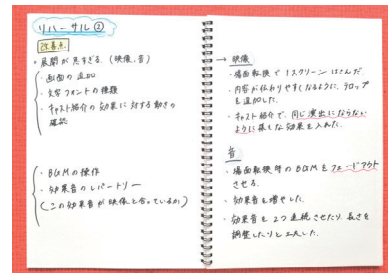 リハーサル②
改善点
・展開が早すぎる。(映像、音)
・画面の追加
・文字フォントの種類
・キャスト紹介の効果に対する動きの
確認
・BGMの操作
・効果音のレパートリー
(この効果音が映像と合っているか)
→ 映像
・場面転換で1スクリーンはさんだ
・内容が伝わりやすくなるように、テロップ
を追加した。
・キャスト紹介で、同じ演出にならない
ように様々な効果を入れた。
音
・場面転換時のBGMをフェードアウト
させる。
・効果音を増やした。
・効果音を2つ連続させたり、長さを
調整したりと工夫した。